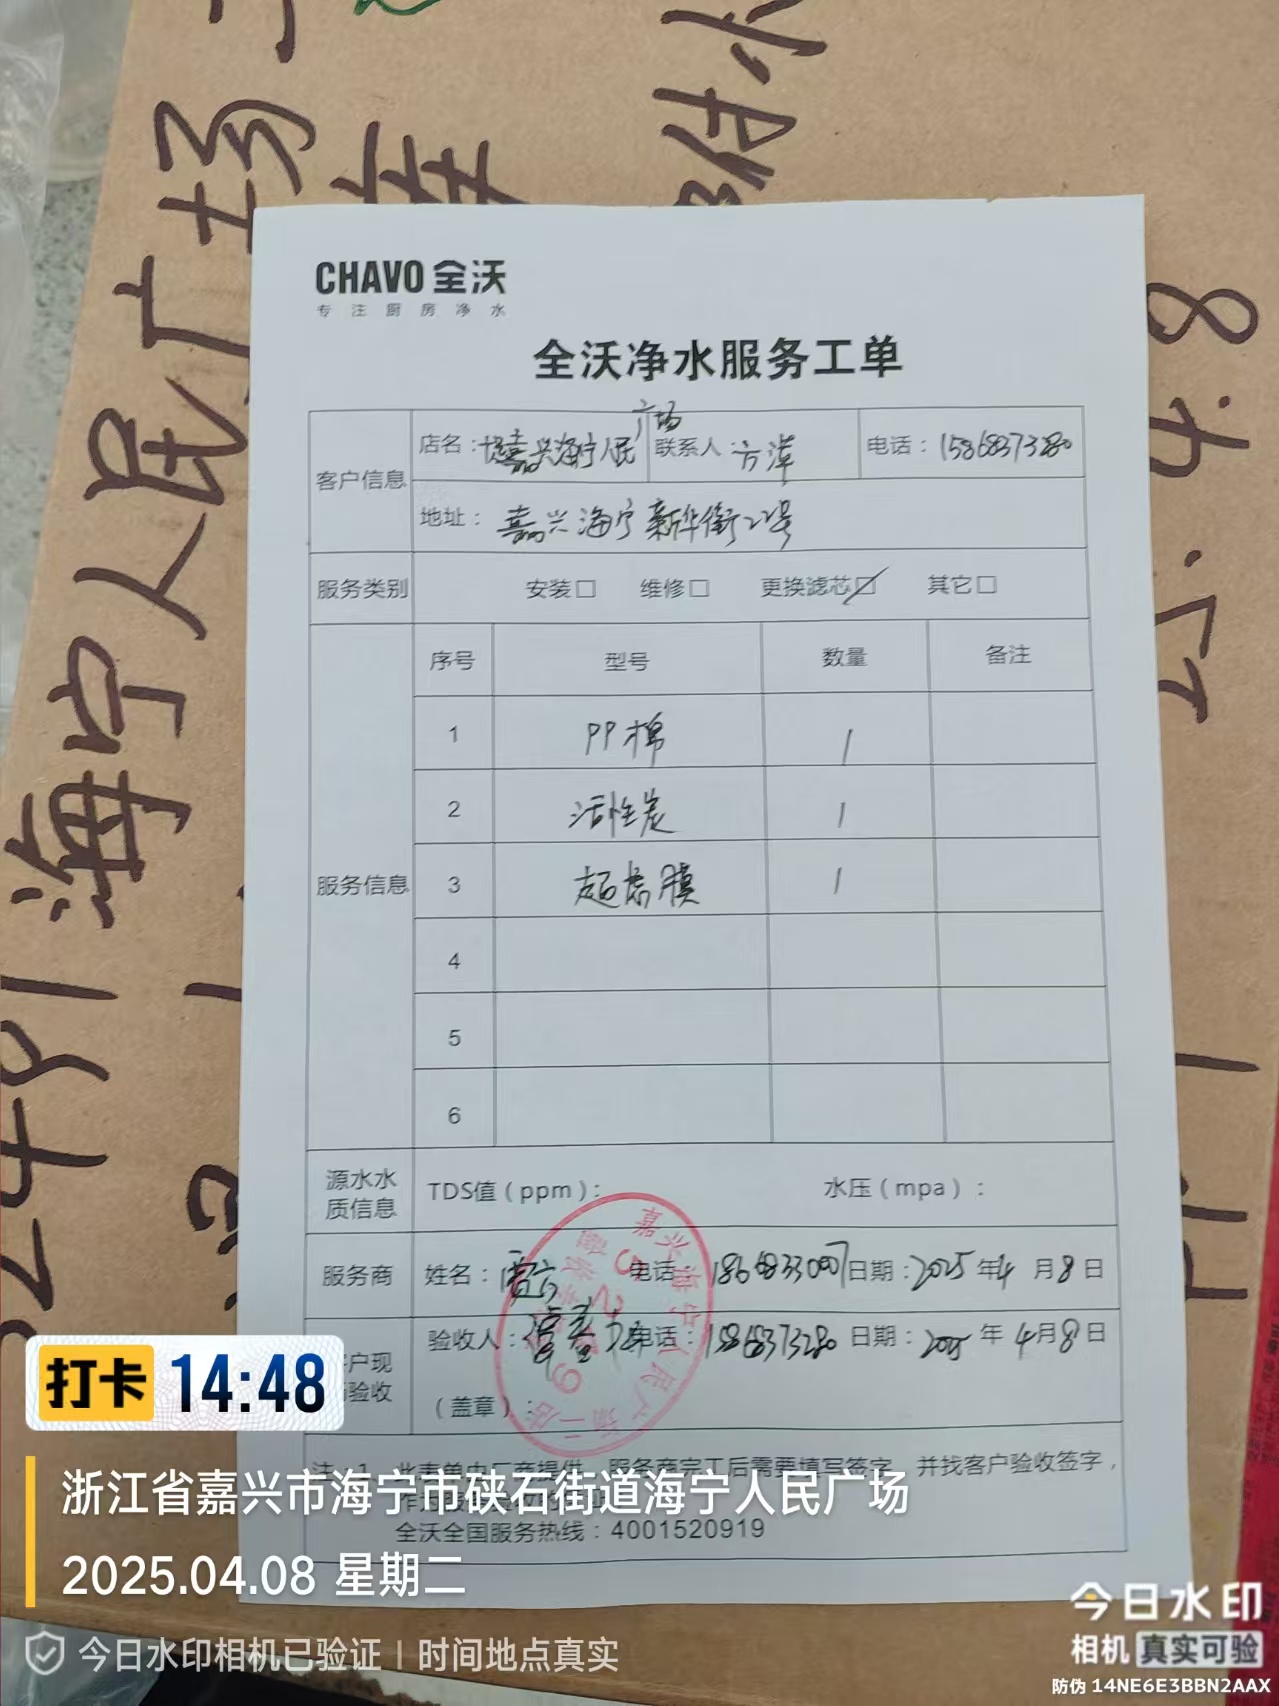 CHAVO 全沃
专注厨房净水
全沃净水服务工单
客户信息
店名：嘉兴海宁人民广场
联系人 方萍
电话：15868373280
地址：嘉兴海宁新华街22号
服务类别 安装□ 维修□ 更换滤芯☑ 其它□
服务信息
序号 型号 数量 备注
1 PP棉 1
2 活性炭 1
3 超滤膜 1
4
5
6
源水水质信息 TDS值（ppm）： 水压（mpa）：
服务商 姓名： 电话：18668330007 日期：2025年4月8日
客户现场验收 验收人： 电话：15868373280 日期：2025年4月8日
（盖章）：
嘉兴海宁人民广场二店
52 9
注：1、此表单由厂商提供，服务商完工后需要填写签字，并找客户验收签字，
全沃全国服务热线：4001520919
海宁人民广场
2481
4.8
打卡 14:48
浙江省嘉兴市海宁市硖石街道海宁人民广场
2025.04.08 星期二
今日水印相机已验证 | 时间地点真实
今日水印
相机 真实可验
防伪 14NE6E3BBN2AAX